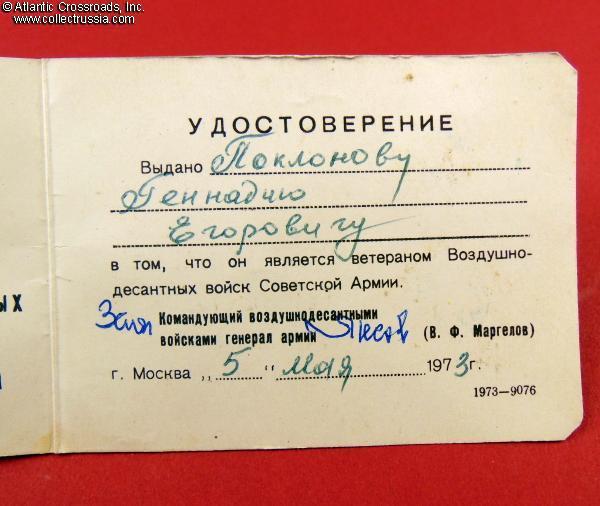 © Atlantic Crossroads, Inc.
www.collectrussia.com
УДОСТОВЕРЕНИЕ
Выдано Поклонову
Геннадию
Егоровичу
в том, что он является ветераном Воздушно-
десантных войск Советской Армии.
ЫХ
Зам Командующий воздушнодесантными
войсками генерал армии (В. Ф. Маргелов)
г. Москва „ 5 " мая 1973г.
1973—9076